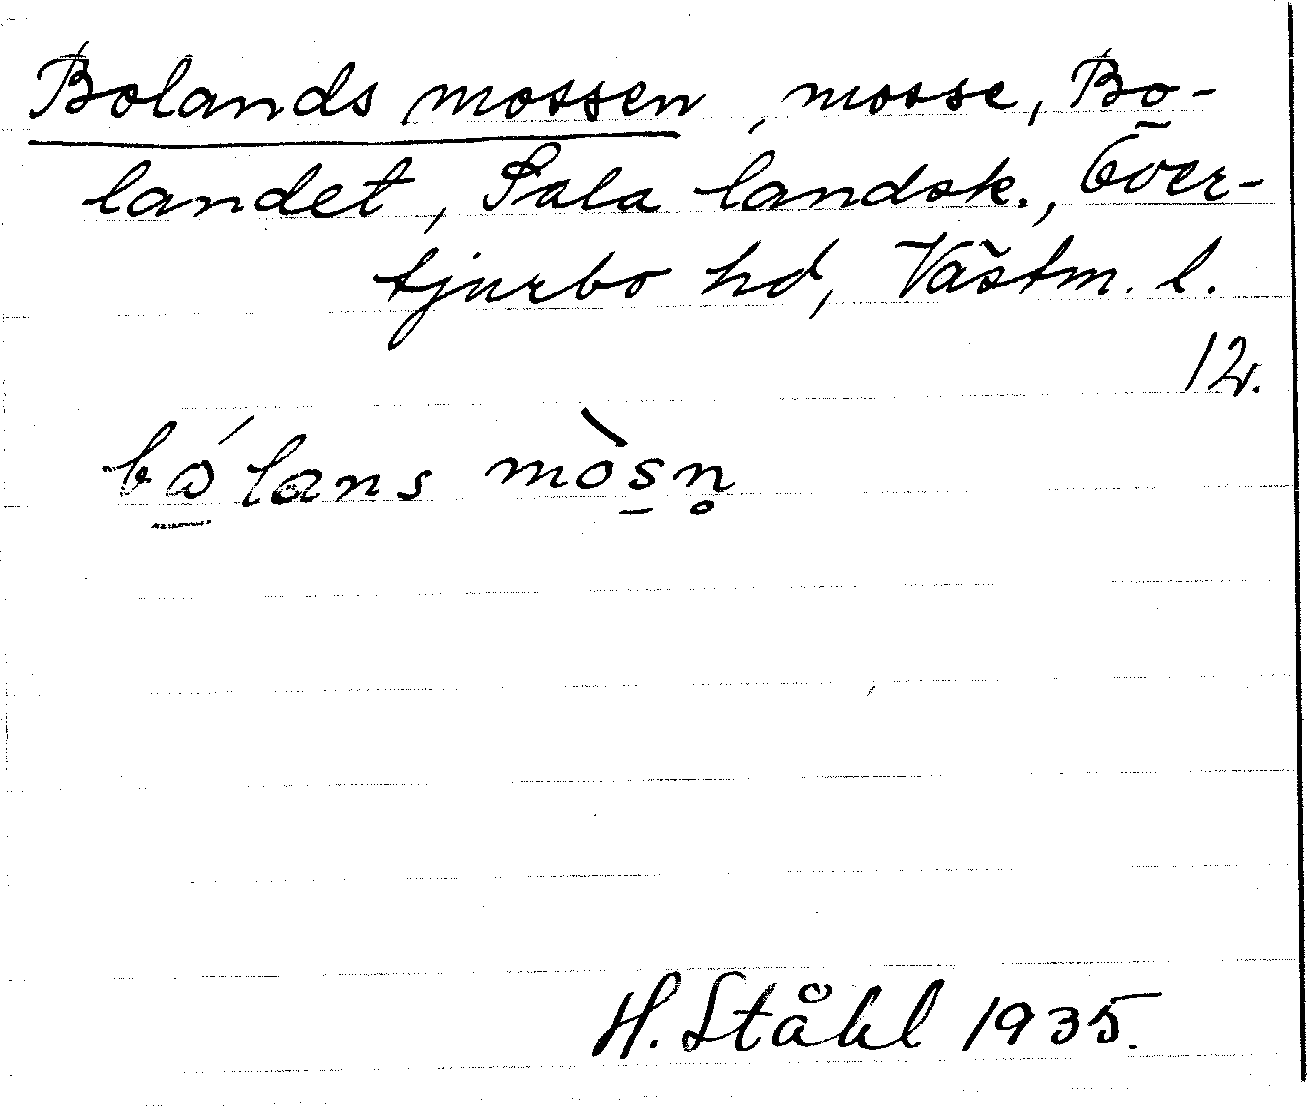 Bolands mossen, mosse, Bo-
landet, Sala landsk., Över-
tjurbo hd, Västm. l.
12.
bo̲´lans mòs̲n̥
H. Ståhl 1935.